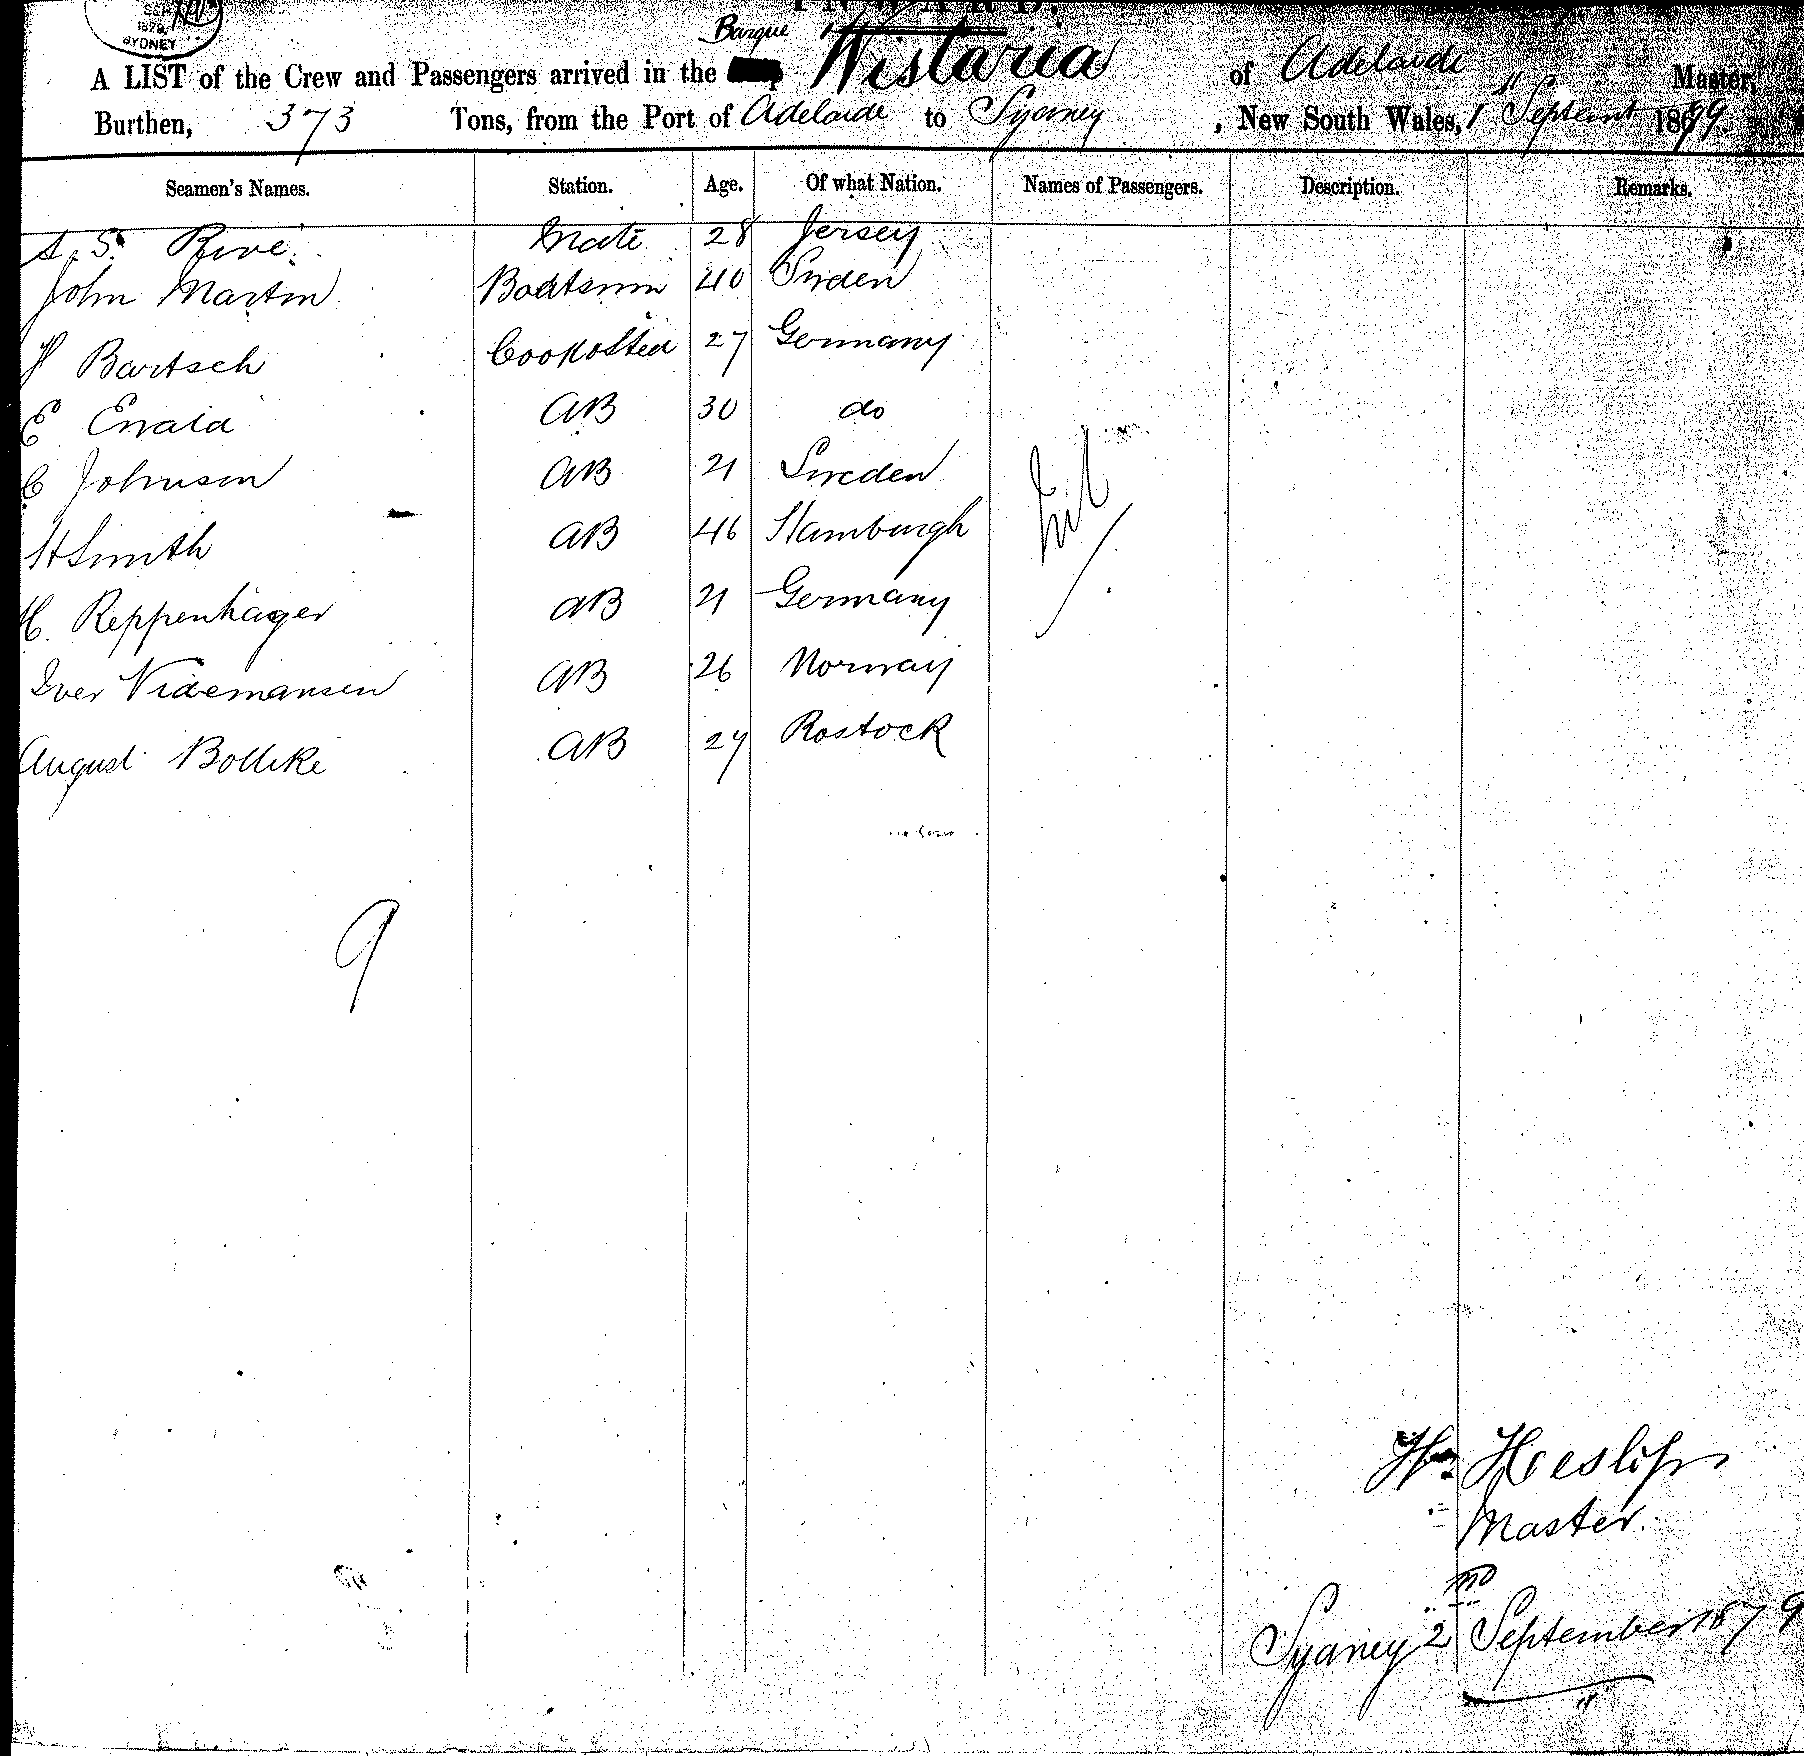 SYDNEY
INWARD.
Barque
A LIST of the Crew and Passengers arrived in the Wistaria of Adelaide Master,
Burthen, 373 Tons, from the Port of Adelaide to Sydney, New South Wales, 1st Septemr 1879.
Seamen's Names. Station. Age. Of what Nation. Names of Passengers. Description. Remarks.
A. S. Rive. Mate 28 Jersey
John Martin Boatsmn 40 Sweden
Bartsch Cook & Stew 27 Germany
E Ewald AB 30 do
C Johnson AB 21 Sweden
H Smith AB 46 Hamburgh
Nil
H. Reppenhager AB 21 Germany
Iver Videmansen AB 26 Norway
August Bolleke AB 27 Rostock
9
Wm Heslop
Master.
Sydney 2nd September 1879